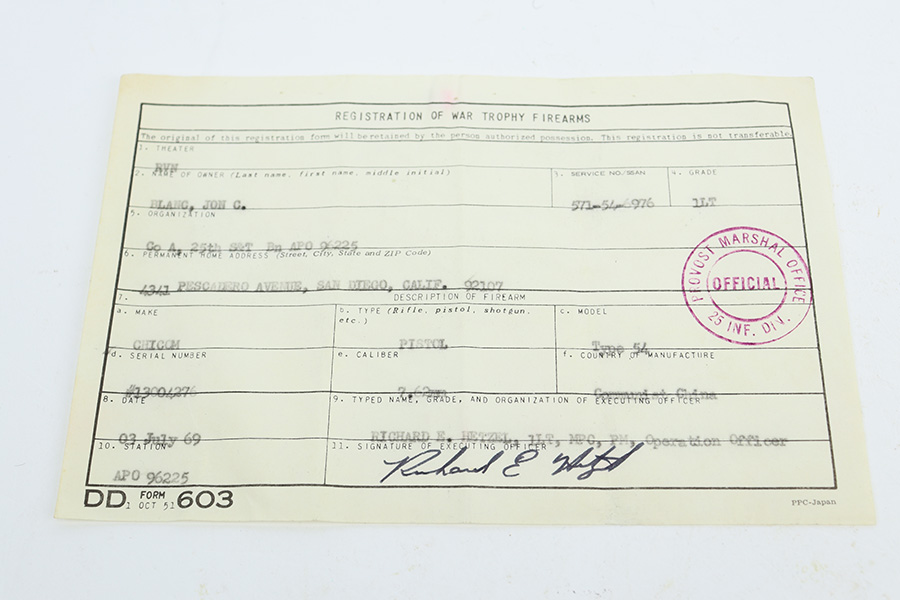 REGISTRATION OF WAR TROPHY FIREARMS
The original of this registration form will be retained by the person authorized possession. This registration is not transferable
1. THEATER
RVN
2. NAME OF OWNER (Last name, first name, middle initial)
3. SERVICE NO./SSAN
4. GRADE
BLANC, JON C.
571-54-6976
1LT
5. ORGANIZATION
Co A, 25th S&T Bn APO 96225
6. PERMANENT HOME ADDRESS (Street, City, State and ZIP Code)
4341 PESCADERO AVENUE, SAN DIEGO, CALIF. 92107
PROVOST MARSHAL OFFICE
OFFICIAL
25 INF. DIV.
7. DESCRIPTION OF FIREARM
a. MAKE
b. TYPE (Rifle, pistol, shotgun, etc.)
c. MODEL
CHICOM
PISTOL
Type 54
d. SERIAL NUMBER
e. CALIBER
f. COUNTRY OF MANUFACTURE
#13004276
7.62mm
Communist China
8. DATE
9. TYPED NAME, GRADE, AND ORGANIZATION OF EXECUTING OFFICER
03 July 69
RICHARD E. HETZEL, 1LT, MPC, PM, Operation Officer
10. STATION
11. SIGNATURE OF EXECUTING OFFICER
APO 96225
Richard E Hetzel
DD FORM 1 OCT 51 603
PPC-Japan